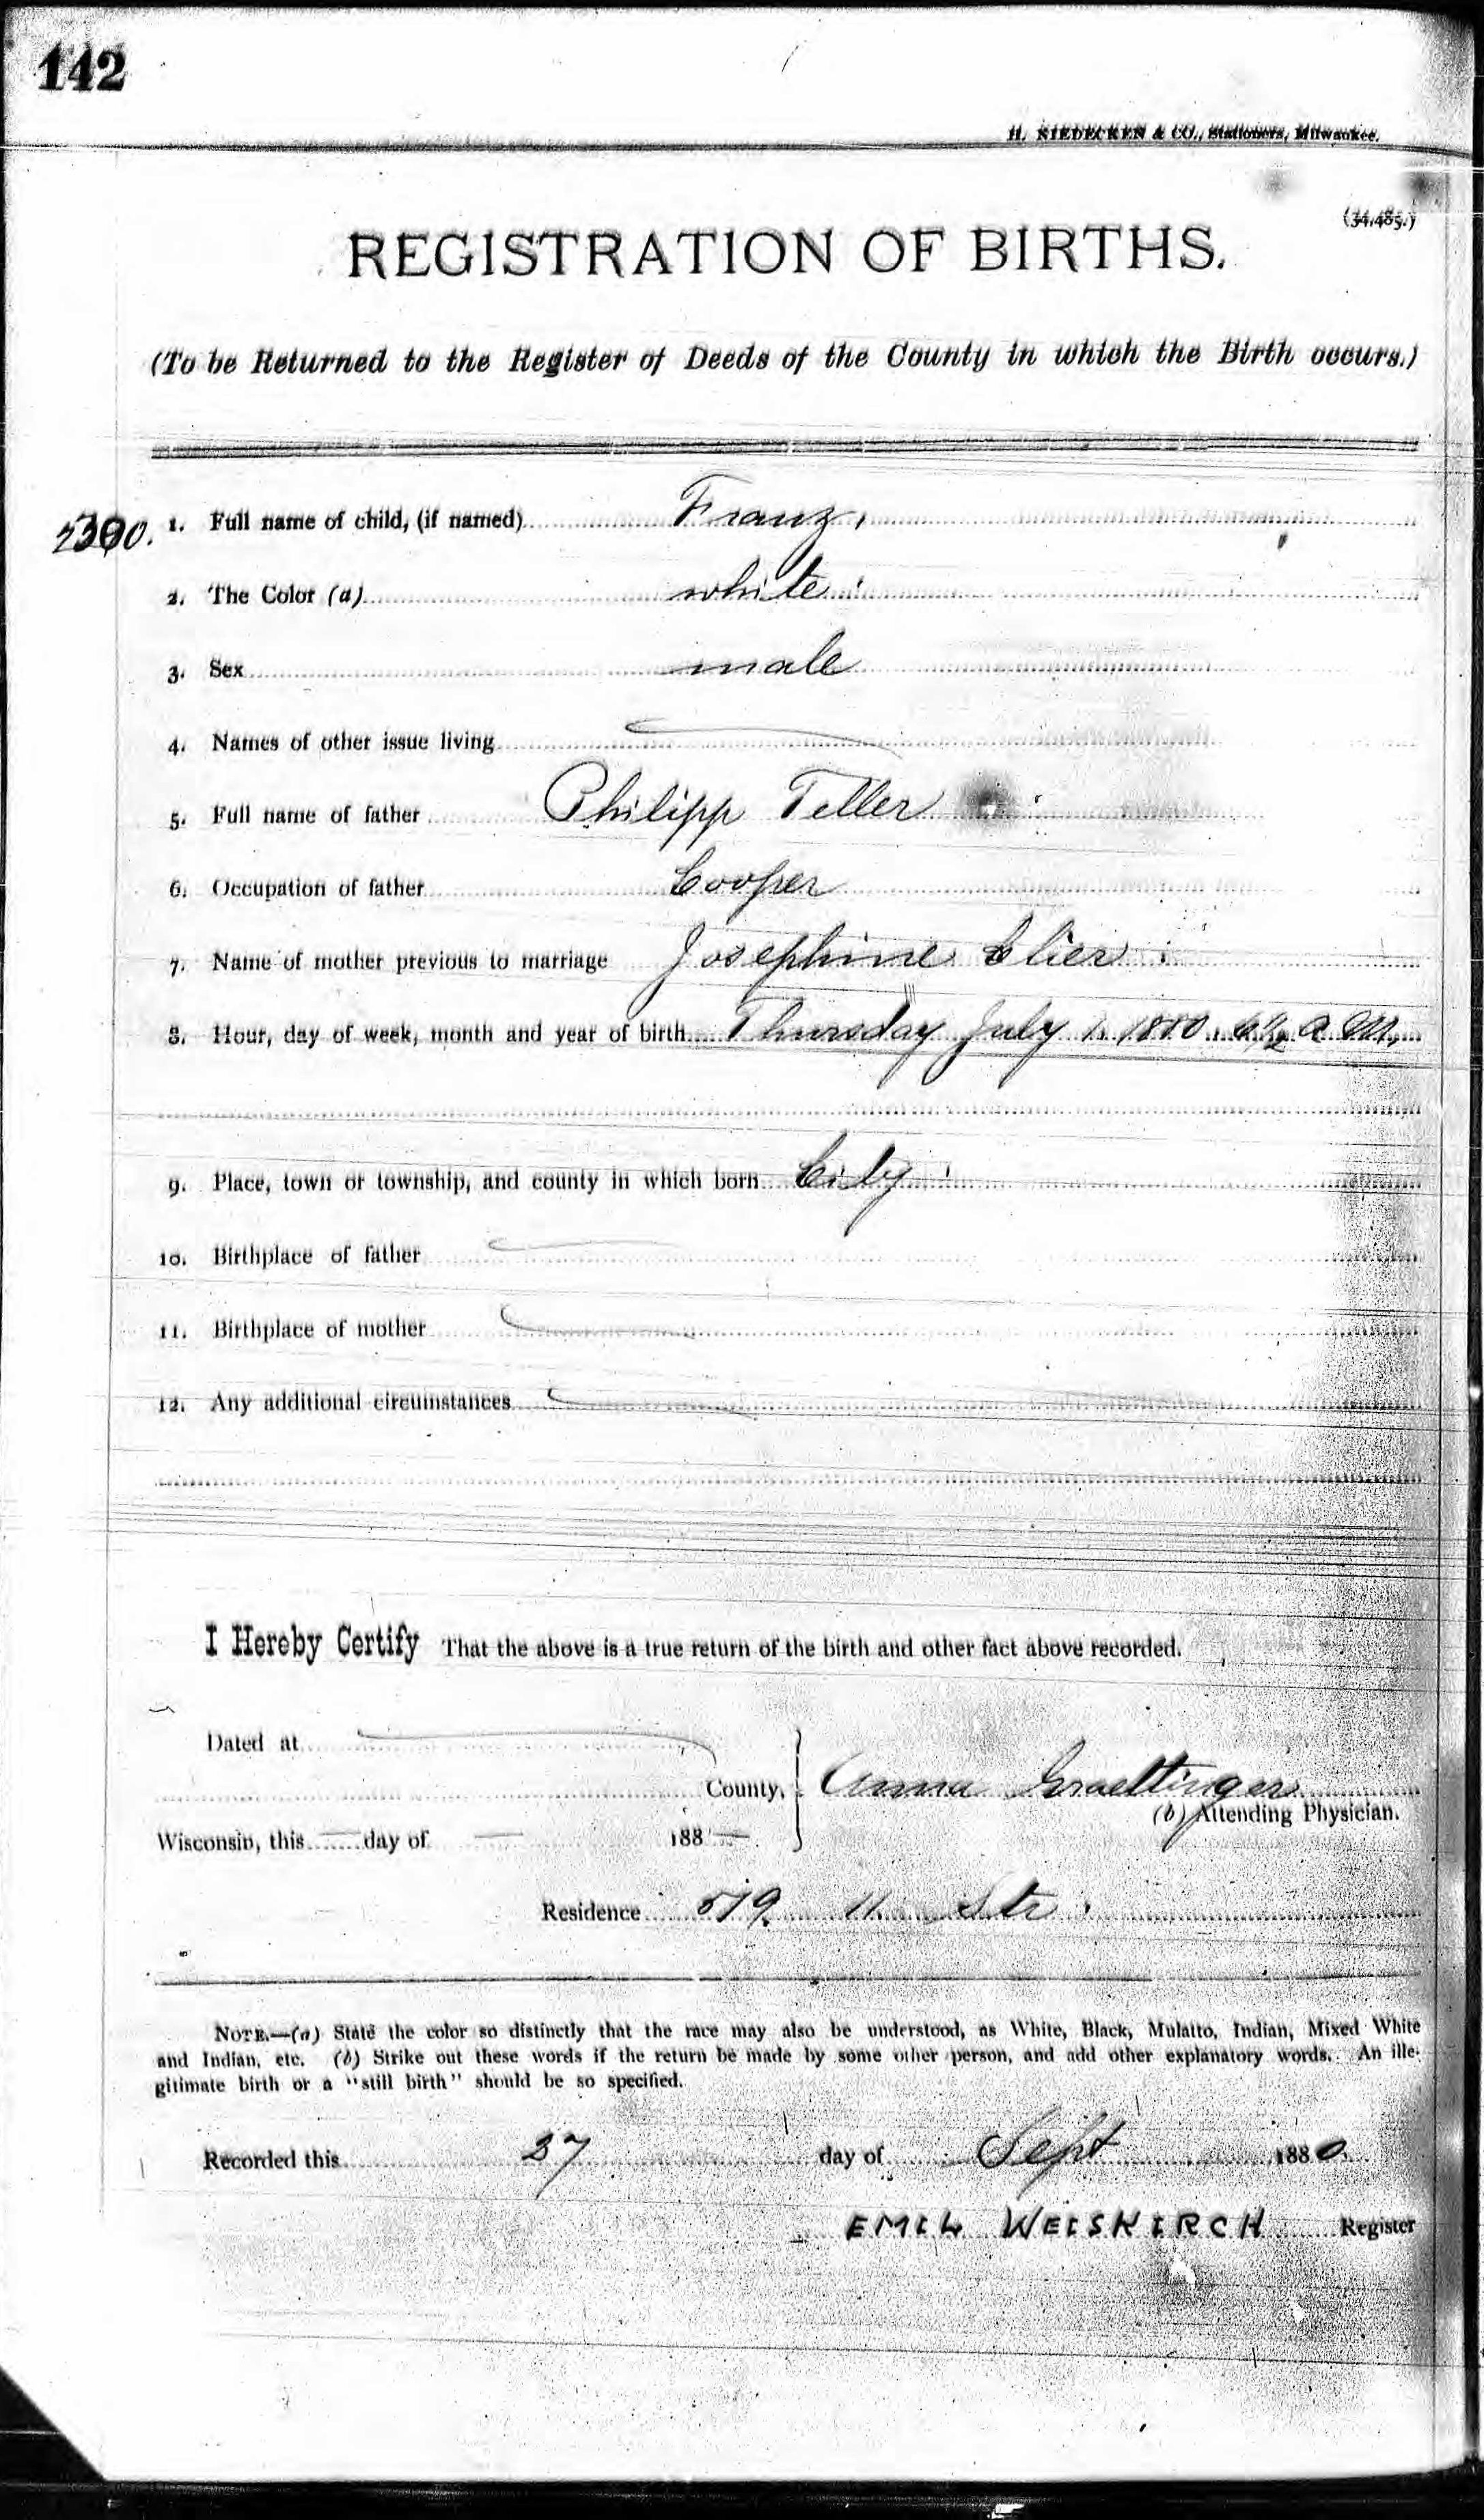 142
H. NIEDECKEN & CO., Stationers, Milwaukee.
(34,485.)
REGISTRATION OF BIRTHS.
(To be Returned to the Register of Deeds of the County in which the Birth occurs.)
1. Full name of child, (if named) Franz,
2. The Color (a) white
3. Sex male
4. Names of other issue living
5. Full name of father Philipp Teller
6. Occupation of father Cooper
7. Name of mother previous to marriage Josephine Clier
8. Hour, day of week, month and year of birth Thursday July 1. 1880. 6 1/2 a M,
9. Place, town or township, and county in which born City
10. Birthplace of father
11. Birthplace of mother
12. Any additional circumstances
I Hereby Certify That the above is a true return of the birth and other fact above recorded.
Dated at
County, Anna Graettinger
(b) Attending Physician.
Wisconsin, this — day of — 188—
Residence 519 11 Str
NOTE.—(a) State the color so distinctly that the race may also be understood, as White, Black, Mulatto, Indian, Mixed White
and Indian, etc. (b) Strike out these words if the return be made by some other person, and add other explanatory words. An ille-
gitimate birth or a "still birth" should be so specified.
Recorded this 27 day of Sept 1880.
EMIL WEISKIRCH Register